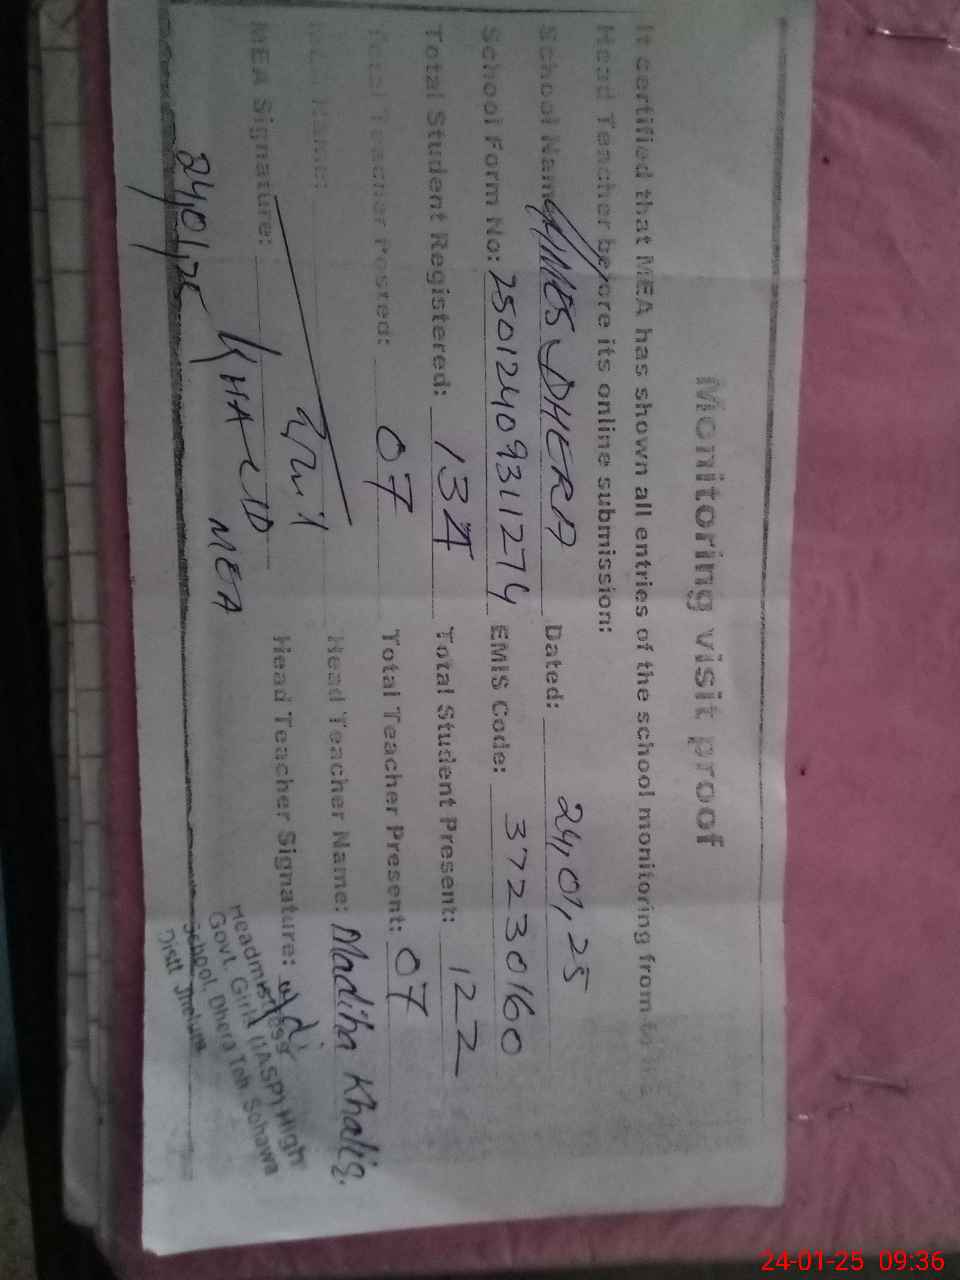 Monitoring visit proof
It certified that MEA has shown all entries of the school monitoring from
Head Teacher before its online submission:
School Name DHERA Dated: 24,01,25
School Form No: 25012409311274 EMIS Code: 37230160
Total Student Registered: 134 Total Student Present: 122
Total Teacher Posted: 07 Total Teacher Present: 07
Name: Head Teacher Name: Madiha Khaliq.
MEA Signature: Head Teacher Signature:
KHALID
MEA
24,01,25
Headmistress
Govt. Girls High
School, Dhera Teh. Sohawa
Distt Jhelum
24-01-25 09:36